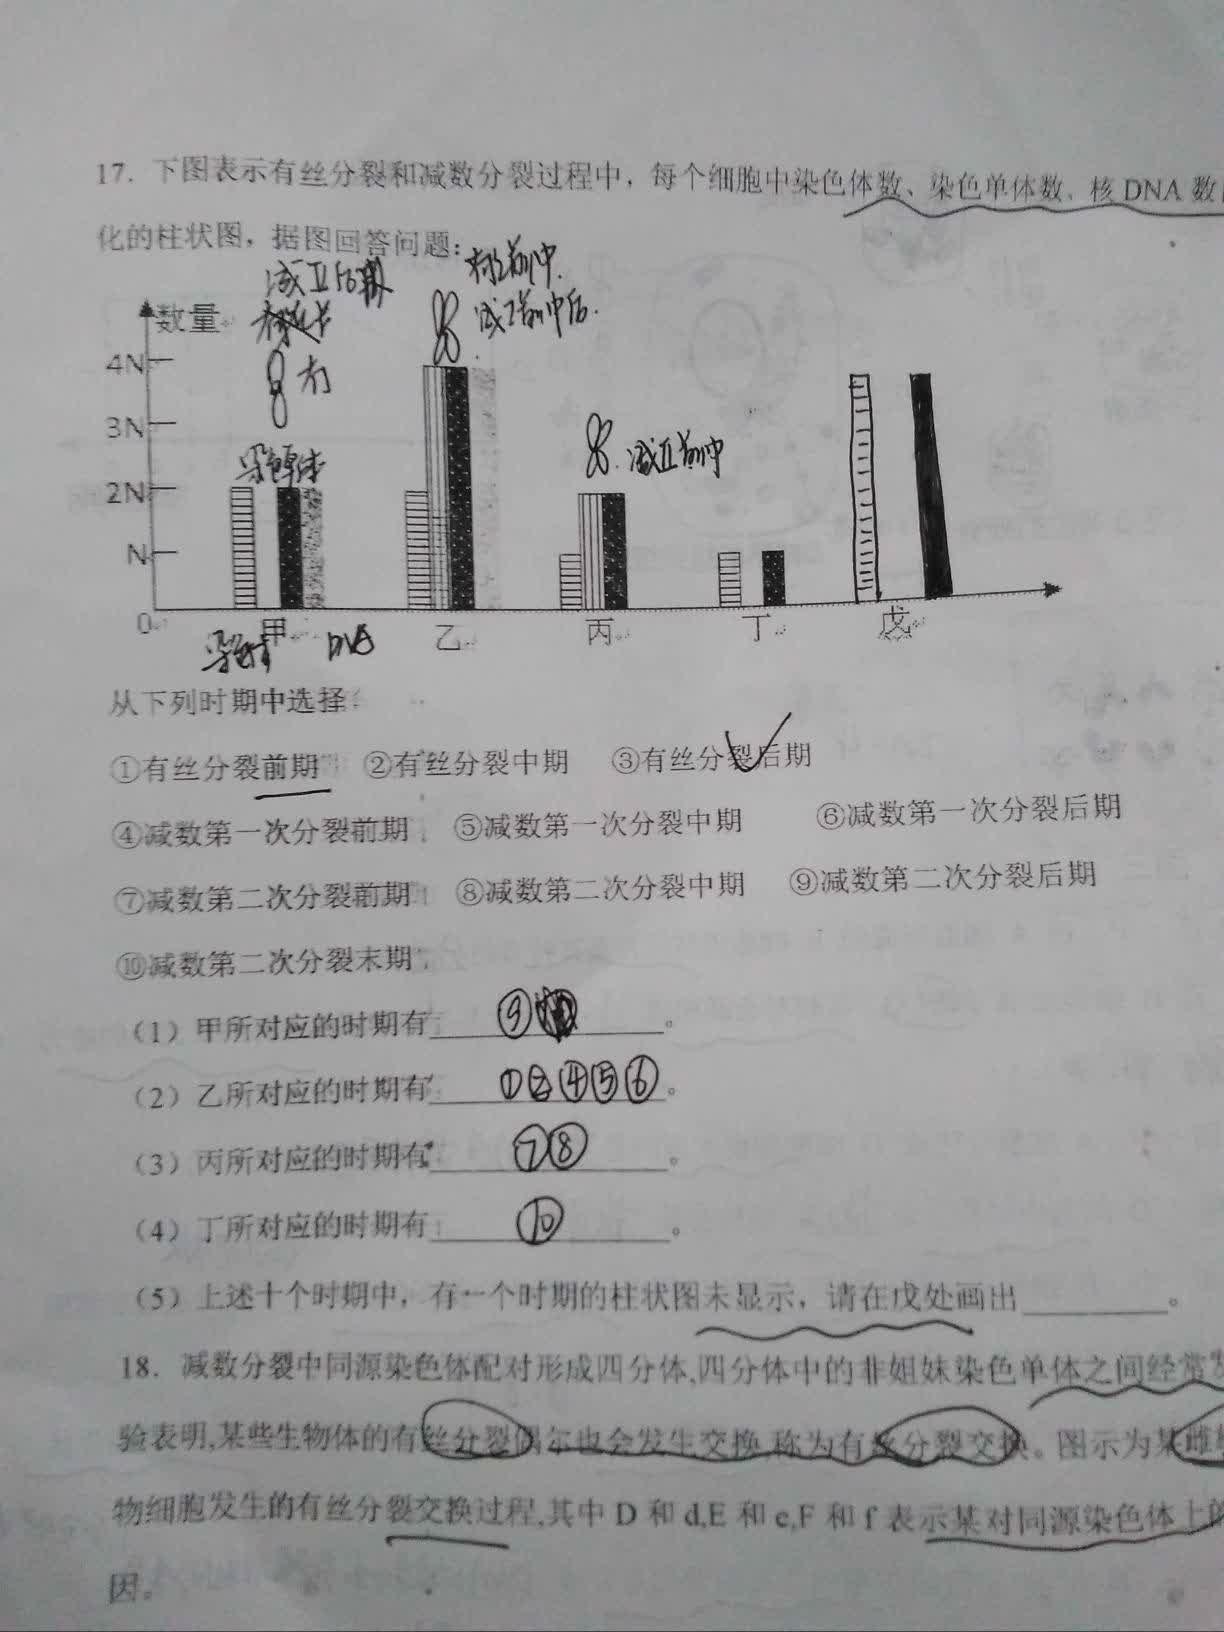 17. 下图表示有丝分裂和减数分裂过程中，每个细胞中染色体数、染色单体数、核 DNA 数
化的柱状图，据图回答问题：
减Ⅱ后期
有
染色单体
减Ⅱ前中
数量
4N
3N
2N
N
0
甲 乙 丙 丁 戊
染色体 DNA
从下列时期中选择：
①有丝分裂前期 ②有丝分裂中期 ③有丝分裂后期
④减数第一次分裂前期 ⑤减数第一次分裂中期 ⑥减数第一次分裂后期
⑦减数第二次分裂前期 ⑧减数第二次分裂中期 ⑨减数第二次分裂后期
⑩减数第二次分裂末期
（1）甲所对应的时期有 ⑨ 。
（2）乙所对应的时期有 ①②④⑤⑥ 。
（3）丙所对应的时期有 ⑦⑧ 。
（4）丁所对应的时期有 ⑩ 。
（5）上述十个时期中，有一个时期的柱状图未显示，请在戊处画出 。
18. 减数分裂中同源染色体配对形成四分体,四分体中的非姐妹染色单体之间经常
验表明,某些生物体的有丝分裂偶尔也会发生交换,称为有丝分裂交换。图示为某雌
物细胞发生的有丝分裂交换过程,其中 D 和 d,E 和 e,F 和 f 表示某对同源染色体上的
因。